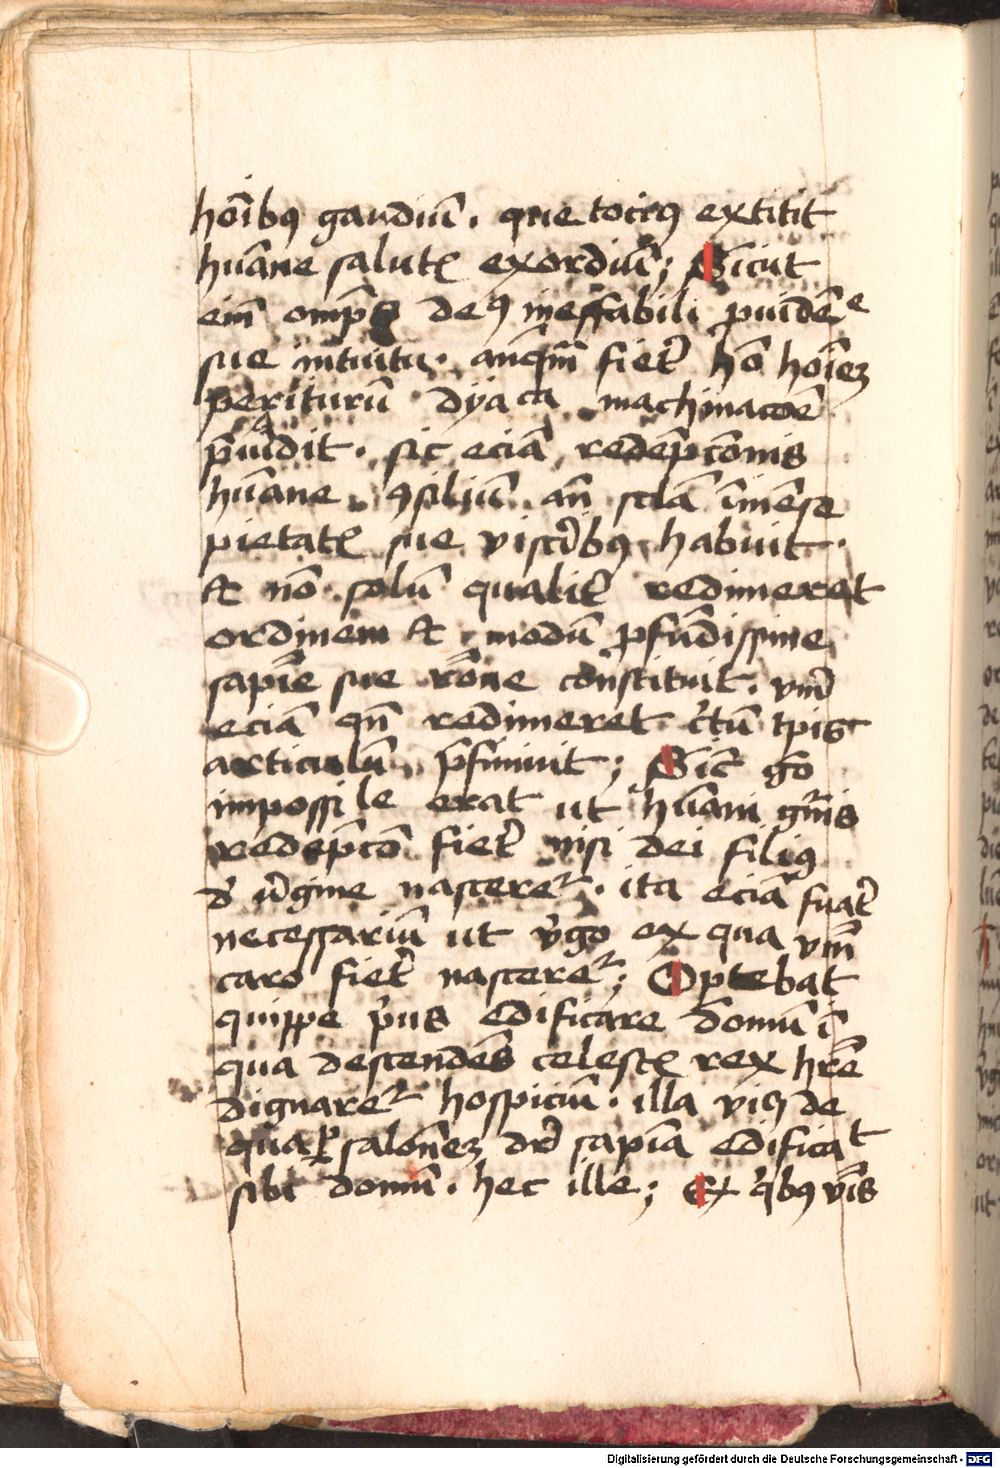 hoı̄bꝯ gaudiū. que tociꝯ extitit
hūane salutꝭ exordiū; Sicut
eī̄ omp̄s deꝯ ineffabili ꝓuidēᵉ
sue intuitu. anq̄m̄ fiet̉ hō hoı̄eꝫ
periturū dyaᶜa machinacōe
p̄uidit. sic eciā redēpcōnis
hūane ꝯsiliū an̄ sclā īmēse
pietatꝭ sue visc̉ibꝯ habuit.
& nō solū qualit̉ redimeret
ordinem & modū ꝓfūdissime
sapı̄e sue rōne constituit. vm̉
eciā qn̄ redimeret c̉tū tp̄is
articulū p̄finiuit; Sic̉ gͦ
impossile erat ut hūani gn̉is
redēpcō fiet̉ nisi dei filiꝯ
d̉ v̉gine nasceret᷑. ita eciā fuat̉
necessariū ut v̉go ex qua vm̄
caro fiet̉ nasceret᷑; Optebat
quippe p̉us edificare domū ī
qua descendēs celestꝭ rex hr̄e
dignaret᷑ hospiciū. illa viꝫ de
qua ꝑ salōneꝫ dr̉ sapı̄a edificat
sibi domū. hec ille; Ex q̉bꝯ v̉is